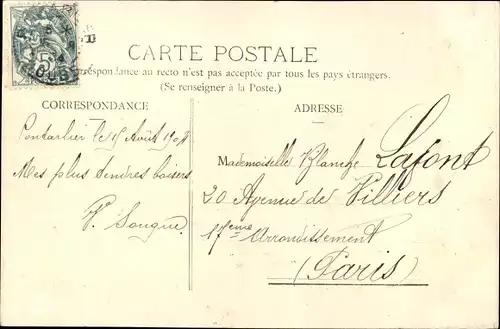 CARTE POSTALE
correspondance au recto n'est pas acceptée par tous les pays étrangers.
(Se renseigner à la Poste.)
CORRESPONDANCE
Pontarlier le 15 Août
Mes plus tendres baisers
ADRESSE
Mademoiselle Blanche Lafont
20 Avenue de Villiers
17eme Arrondissement
(Paris)